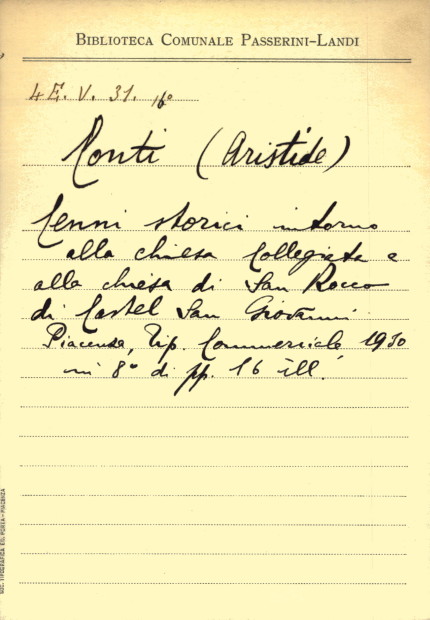 BIBLIOTECA COMUNALE PASSERINI-LANDI
4E. V. 31. 16º
Conti (Aristide)
Cenni storici intorno
alla chiesa Collegiata e
alla chiesa di San Rocco
di Castel San Giovanni
Piacenza, Tip. Commerciale 1930
in 8º di pp. 16 ill.
SOC. TIPOGRAFICA ED. PORTA - PIACENZA